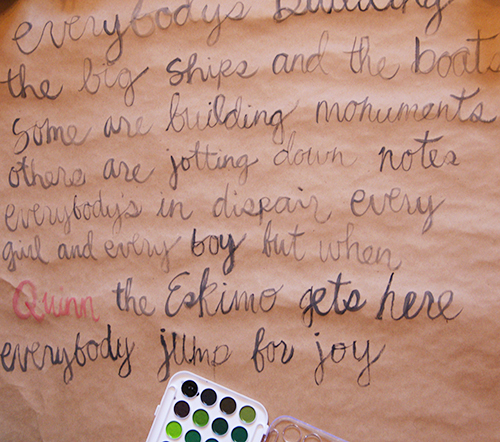 everybodys building
the big ships and the boats
some are building monuments
others are jotting down notes
everybody's in dispair every
girl and every boy but when
Quinn the Eskimo gets here
everybody jump for joy